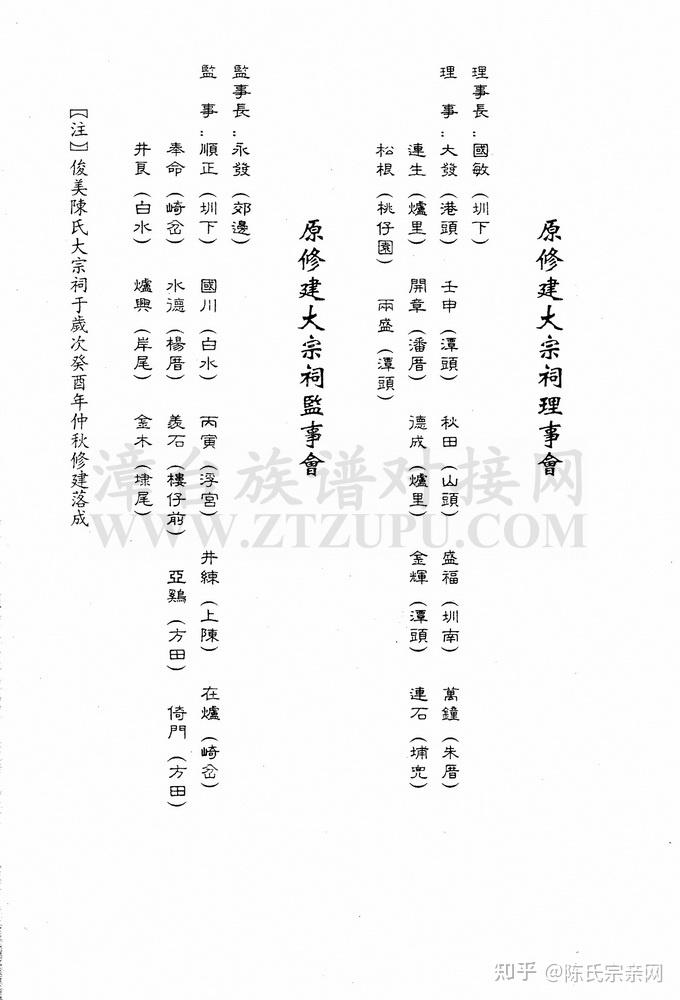 原修建大宗祠理事會
理事長：國敏（圳下）
理　事：大發（港頭）　壬申（潭頭）　秋田（山頭）　盛福（圳南）　萬鐘（朱厝）
連生（爐里）　開章（潘厝）　德成（爐里）　金輝（潭頭）　連石（埔兜）
松根（桃仔園）　兩盛（潭頭）
原修建大宗祠監事會
監事長：永發（郊邊）
監　事：順正（圳下）　國川（白水）　丙寅（浮宮）　井練（上陳）　在爐（崎岔）
奉命（崎岔）　水德（楊厝）　羨石（樓仔前）　亞鷄（方田）　倚門（方田）
井艮（白水）　爐興（岸尾）　金木（埭尾）
【注】俊美陳氏大宗祠于歲次癸酉年仲秋修建落成
漳台族谱对接网
WWW.ZTZUPU.COM
知乎 @陈氏宗亲网